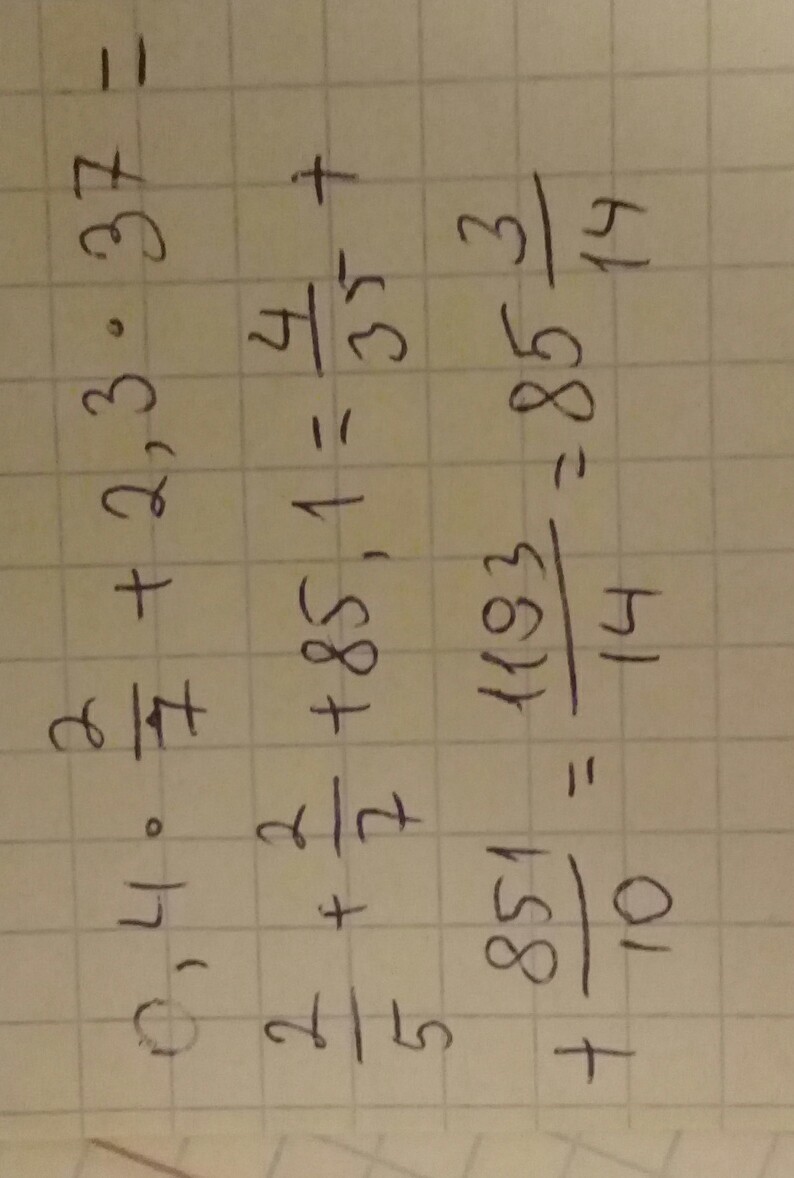 0,4 · 2/7 + 2,3 · 37 =
2/5 + 2/7 + 85,1 = 4/35 +
+ 851/10 = 1193/14 = 85 3/14